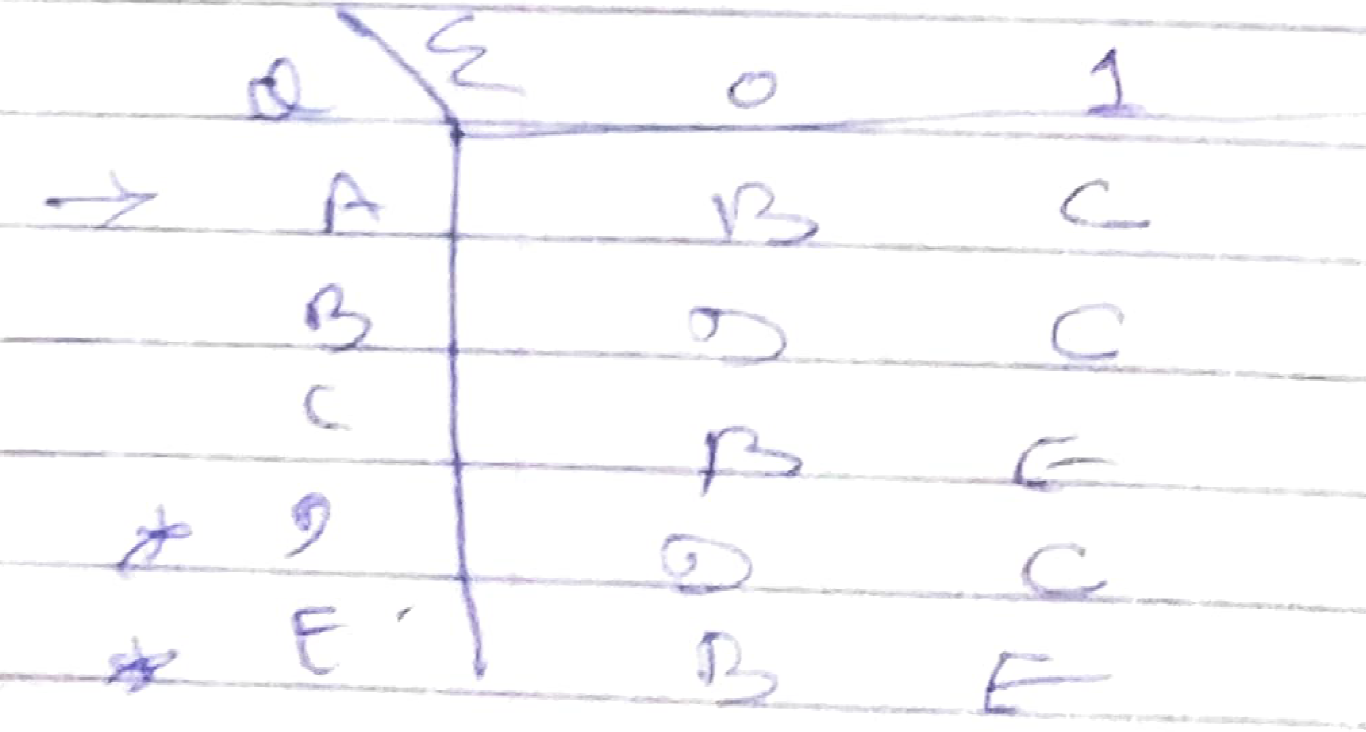 Q Σ 0 1
→ A B C
B D C
C B E
* D D C
* E B E